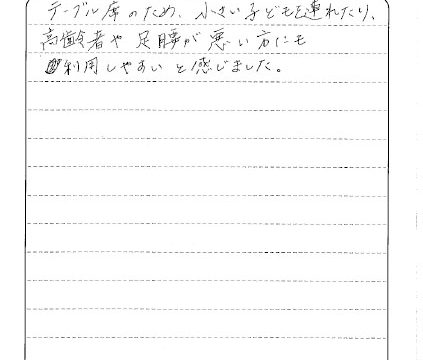 テーブル席のため、小さい子どもを連れたり、
高齢者や足腰が悪い方にも
利用しやすいと感じました。